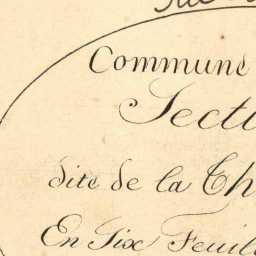 Commune
Secti
dite de la Th
En Six Feuill